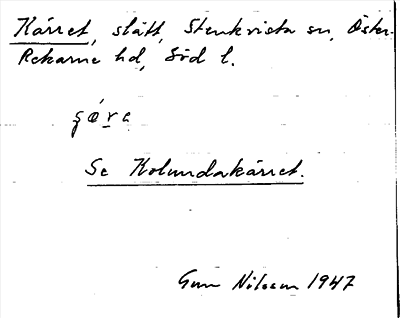 Kärret, slått, Stenkvista sn, Öster-
Rekarne hd, Söd l.
Se Kolundakärret.
Gun Nilsson 1947